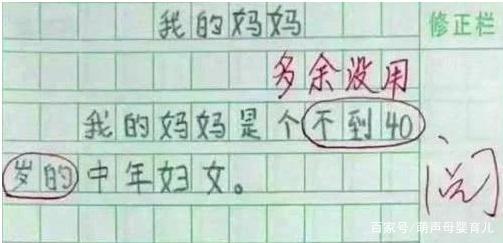 我的妈妈
修正栏
多余没用
我的妈妈是个不到40、
岁的中年妇女。
阅
百家号/萌声母婴育儿